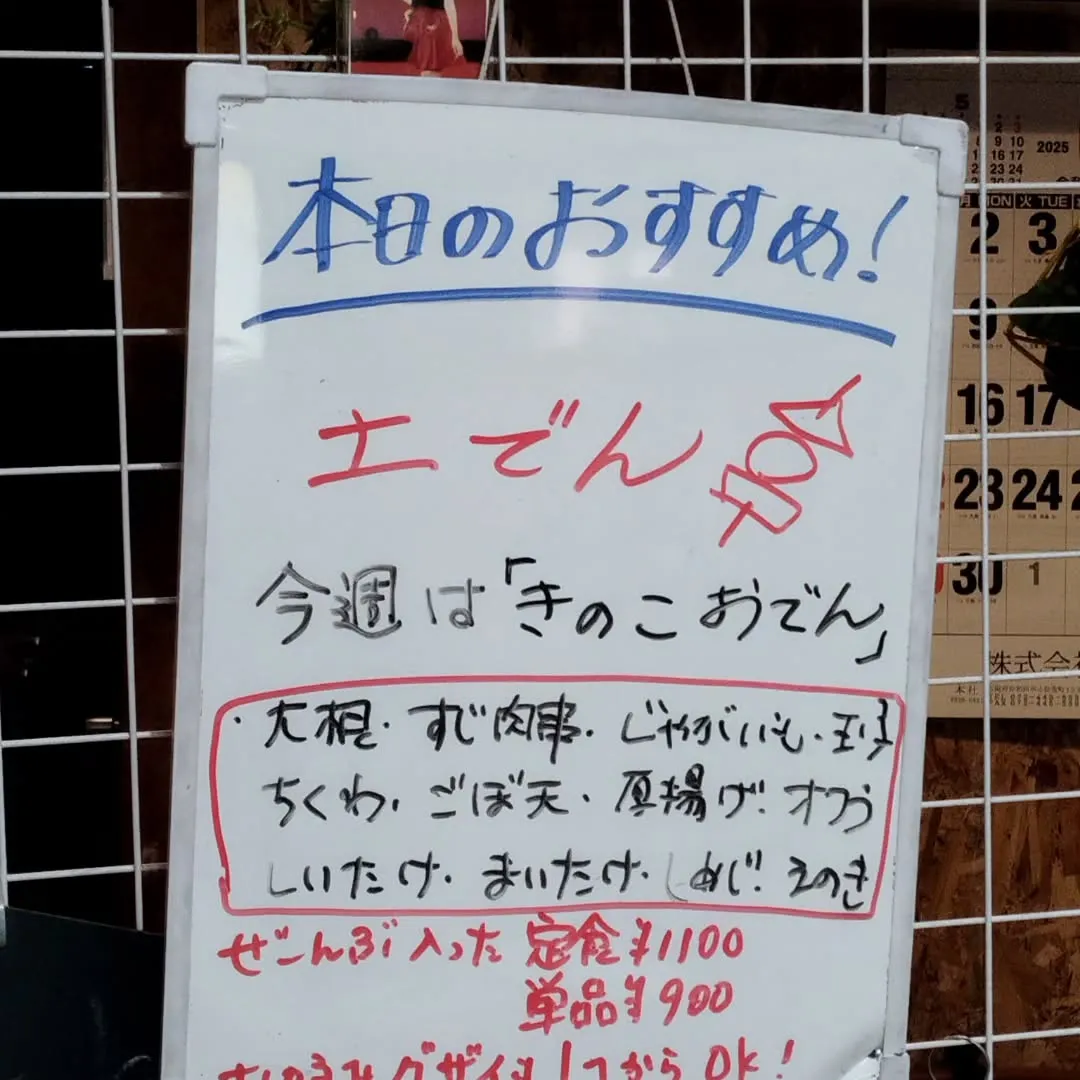 本日のおすすめ!
土でん
今週は「きのこおでん」
・大根・すじ肉串・じゃがいも・玉子
ちくわ・ごぼ天・厚揚げ・オクラ
しいたけ・まいたけ・しめじ・えのき
ぜーんぶ入った 定食¥1100
単品¥900
からOK!
5
2 3
8 9 10
16 17
22 23 24
2025
月 MON 火 TUE
2 3
9
16 17
23 24
30 1
株式会
本社